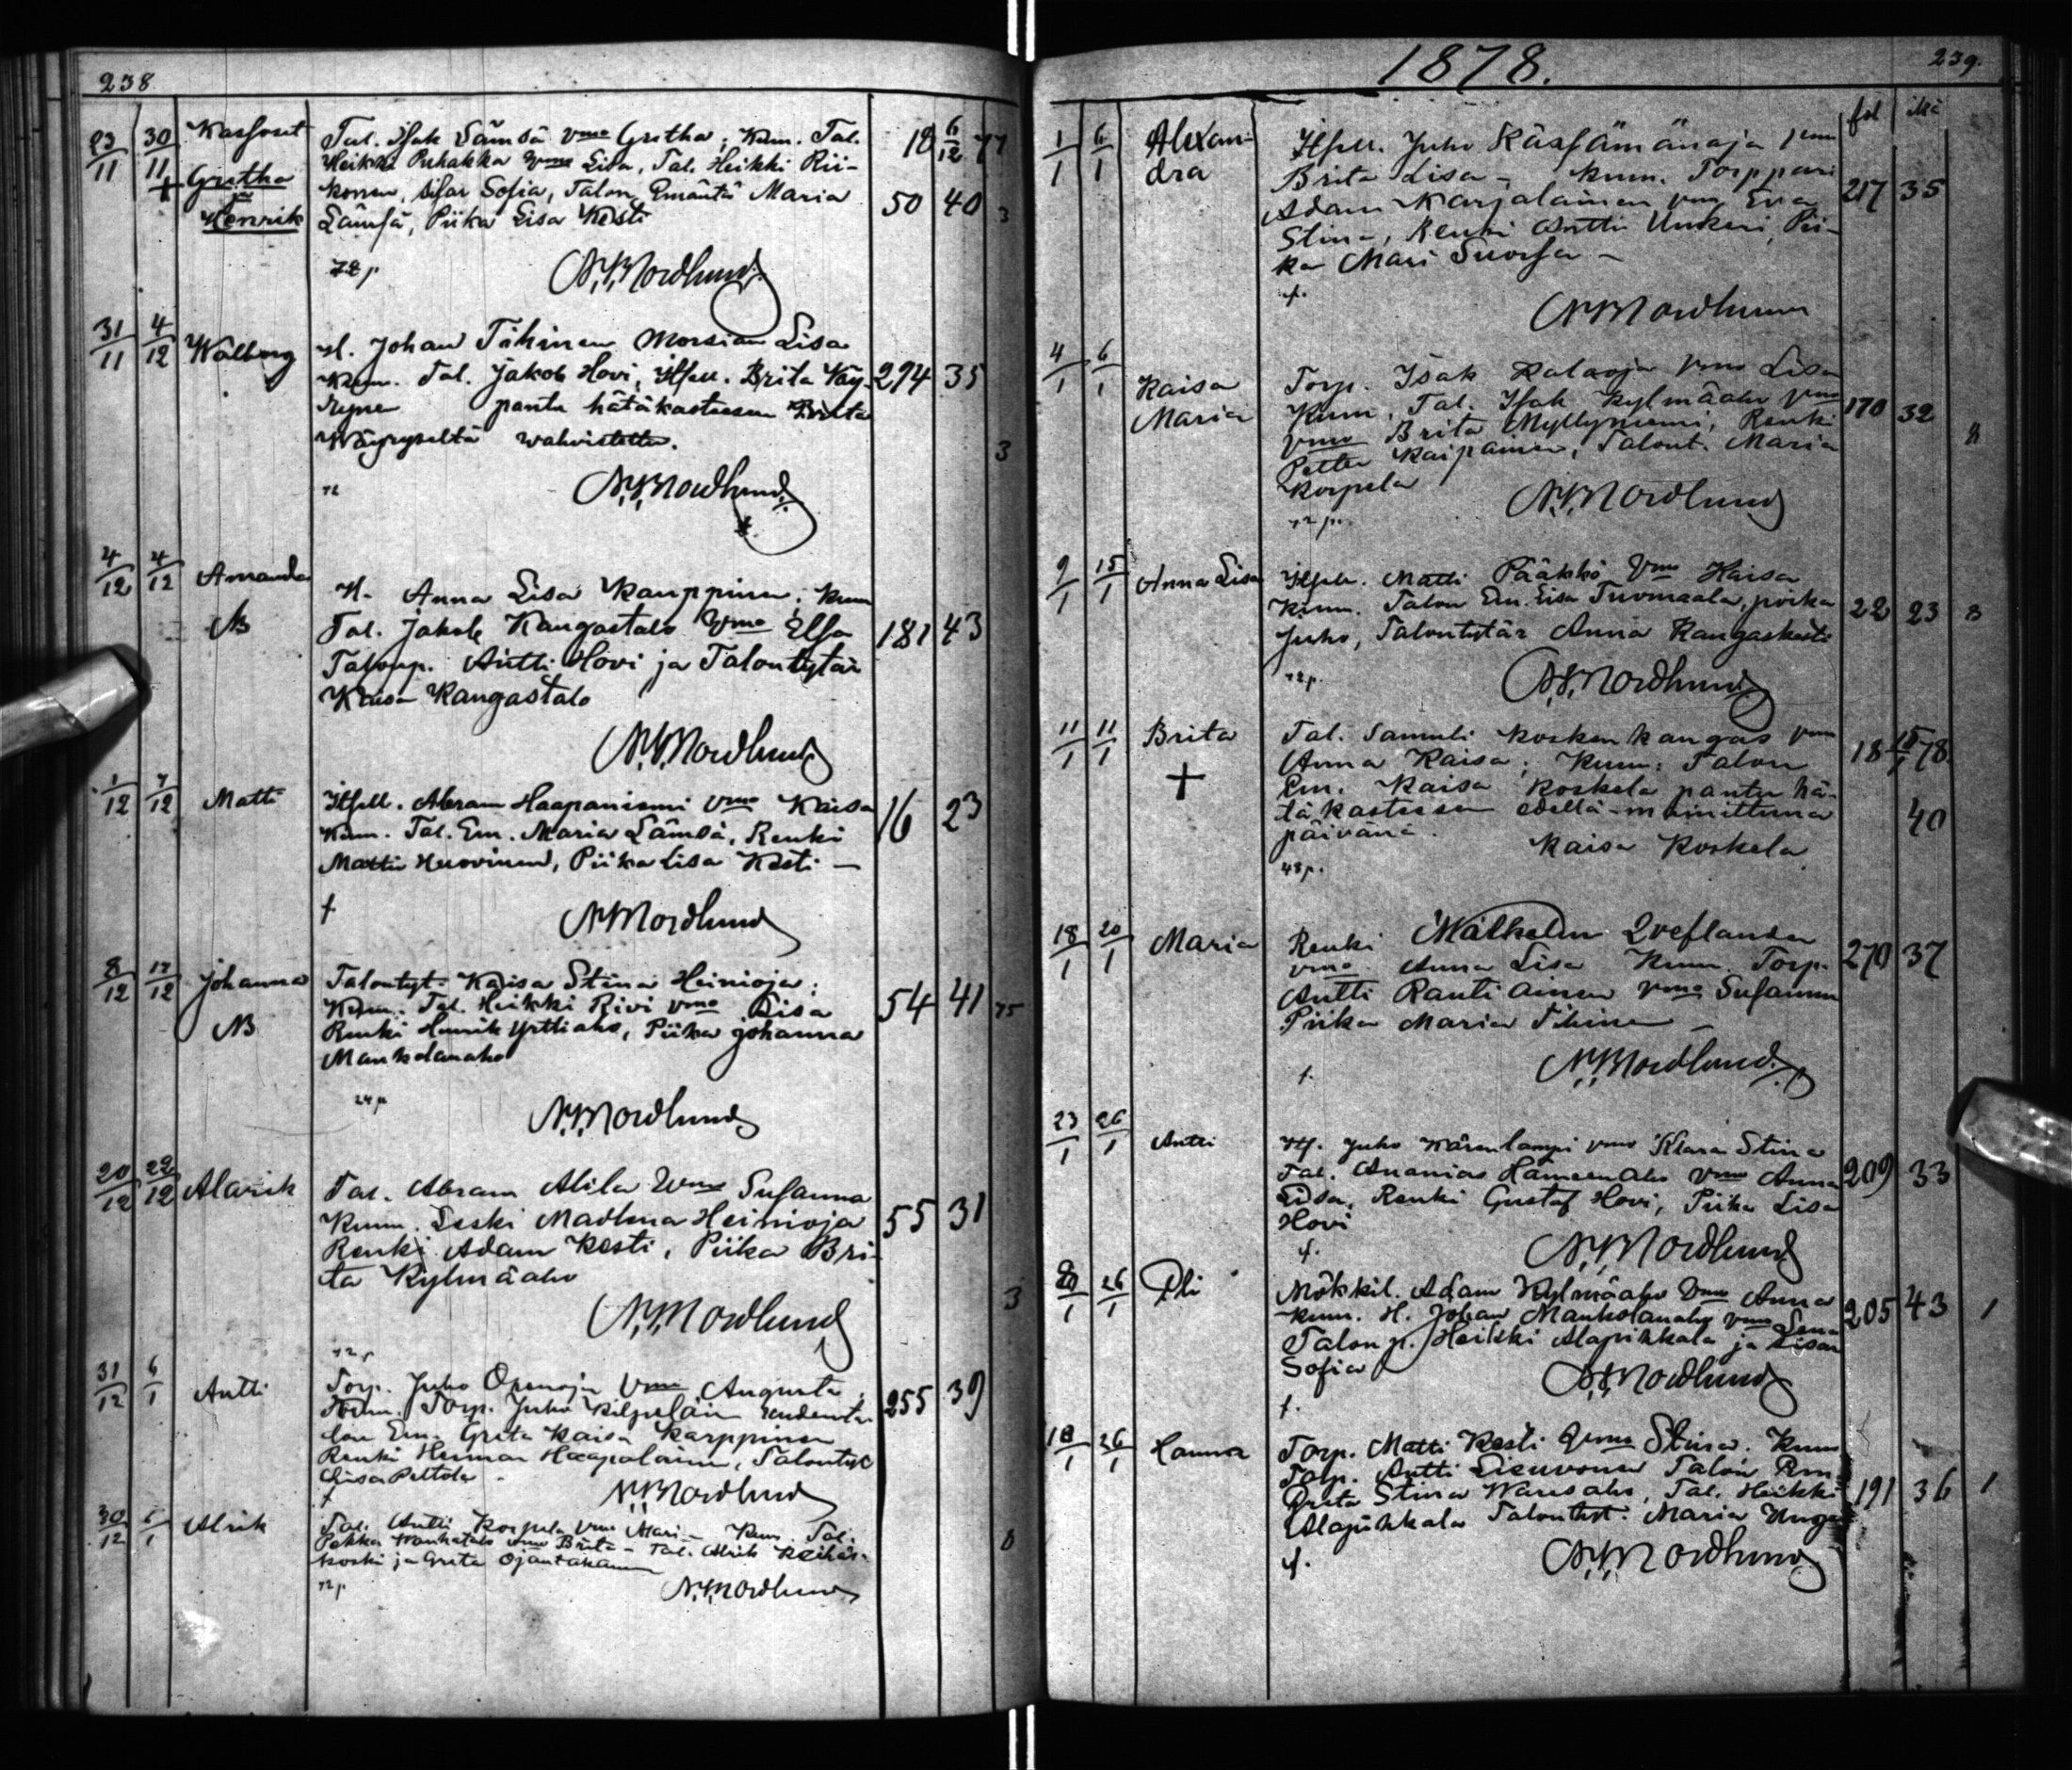 238
23/11 30/11 Kaksoset Tal. Isak Lämsä vmo Gretha; Kum. Tal. 18 6/12 77
Heikki Puhakka vmo Lisa, Tal. Heikki Rii-
+ Gretha konen, sisar Sofia, Talon Emäntä Maria 50 40 3
ja Henrik Lämsä, Piika Lisa Kesti
72 p N.V. Nordlund
31/11 4/12 Walborg It. Johan Tihinen Morsian Lisa
Kum. Tal. Jakob Hovi, Itsell. Brita Väy- 294 35
rynen pantu hätäkasteesen Brita
Wäyryseltä wahvistettu. 3
72 N.V. Nordlund
4/12 4/12 Amanda It. Anna Lisa Karppinen; Kum
NB Tal. Jakob Kangastalo Vmo Elsa 181 43
Talonp. Antti Hovi ja Talontytär
Kaisa Kangastalo
N.V. Nordlund
1/12 7/12 Matti Itsell. Abram Haapaniemi Vmo Kaisa 16 23
Kum. Tal. Em. Maria Lämsä, Renki
Matti Huovinen, Piika Lisa Kesti —
f. N.V. Nordlund
8/12 17/12 Johanna Talontyt. Kaisa Stina Heinioja;
Kum. Tal. Heikki Rivi vmo Lisa 54 41 75
NB Renki Henrik Yrttiaho, Piika Johanna
Mankolanaho
24 p N.V. Nordlund
20/12 22/12 Alarik Tal. Abram Alila Vmo Susanna
Kum. Leski Madlena Heinioja 55 31
Renki Adam Kesti, Piika Bri-
ta Kylmäaho
N.V. Nordlund 3
72 p
31/12 6/1 Antti Torp. Juho Vmo Augusta; 255 39
Kum. Torp. Juho Kilpeläin
lon Em. Greta Kaisa Karppinen
Renki Herman Haapalainen, Talontyt
Peltola
f N.V. Nordlund
30/12 6/1 Alrik Tal. Antti Korpela Vmo Mari — Kum. Tal.
Pekka vmo Brita — Tal. Alrik Keihäs- 8
koski ja Greta Ojantakanen
72 p. N.V. Nordlund
1878. 239.
fol ikä
1/1 6/1 Alexan- Itsell. Juho Käsfämänaja
dra Brita Lisa — Kum. Torppari
Adam Karjalainen vmo Eva 217 35
Stina, Renki Antti Unkuri, Pii-
ka Mari Suorsa —
f. N.V. Nordlund
4/1 6/1 Kaisa Torp. Isak Kalaoja Vmo Lisa
Maria Kum. Tal. Isak Kylmäaho vmo 170 32
vmo Brita Myllyniemi, Renki 8
Petter Kaipainen, Talont. Maria
Korpela
72 p. N.V. Nordlund
9/1 15/1 Anna Lisa Itsell. Matti Pääkkö Vmo Kaisa
Kum. Talon Em. Lisa Tuomaala, poika 22 23 8
Juho, Talontytär Anna Kangaskesti
72 p. N.V. Nordlund
11/1 11/1 Brita Tal. Samuli Koskenkangas vmo
+ Anna Kaisa; Kum: Talon 18 15/1 78
Em. Kaisa Koskela pantu hä-
täkasteesen edellä-mainittuna 40
päivänä. Kaisa Koskela
48 p.
18/1 20/1 Maria Renki Wilhelm Qveflander
vmo Anna Lisa Kum. Torp. 270 37
Antti Rantiainen vmo Susanna
Piika Maria Tihinen —
f. N.V. Nordlund
23/1 26/1 Antti It. Juho Kärenlampi vmo Klara Stina
Tal. Ananias Hämeenaho vmo Anna 209 33
Lisa, Renki Gustaf Hovi, Piika Lisa
Hovi
f. N.V. Nordlund
26/1 Pli Mökkil. Adam Kylmäaho Vmo Anna
Kum. It. Johan Mankolanaho vmo Lena 205 43 1
Talonp. Heikki Alapihkala ja sisar
Sofia
f. N.V. Nordlund
18/1 26/1 Hanna Torp. Matti Kesti Vmo Stina. Kum
Torp. Antti Lieuvonen Talon Em
Greta Stina Waresaho, Tal. Heikki 191 36 1
Alapihkala Talontyt. Maria Unga
f. N.V. Nordlund